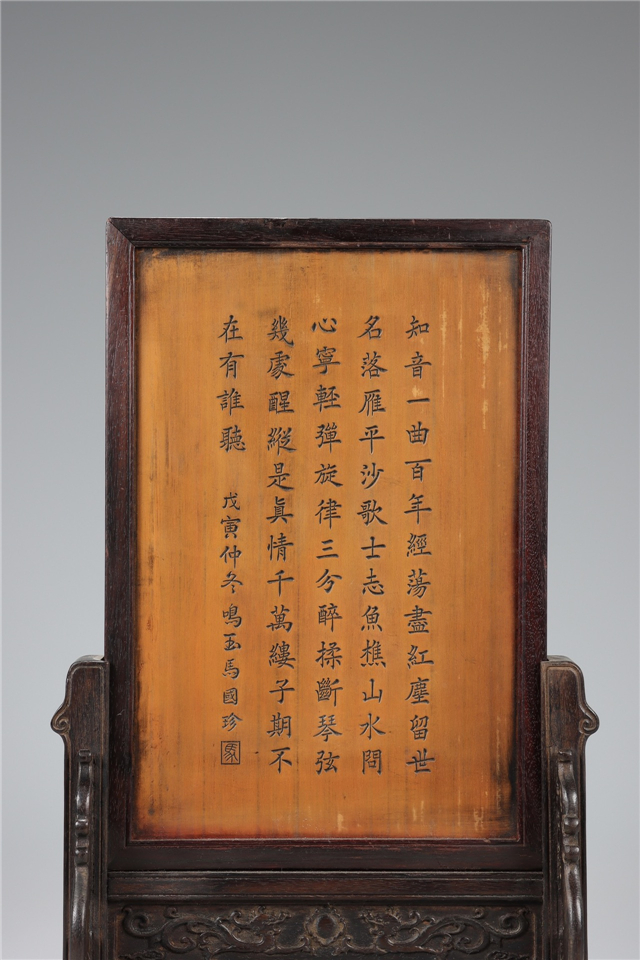 知音一曲百年經蕩盡紅塵留世
名落雁平沙歌士志魚樵山水問
心寧輕彈旋律三分醉揉斷琴弦
幾處醒縱是真情千萬縷子期不
在有誰聽
戊寅仲冬鳴玉馬國珍
馬